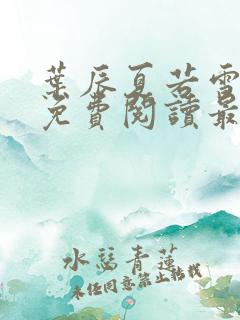 葉辰夏若雪
免費閱讀最
水慧青蓮
未經同意禁止轉載